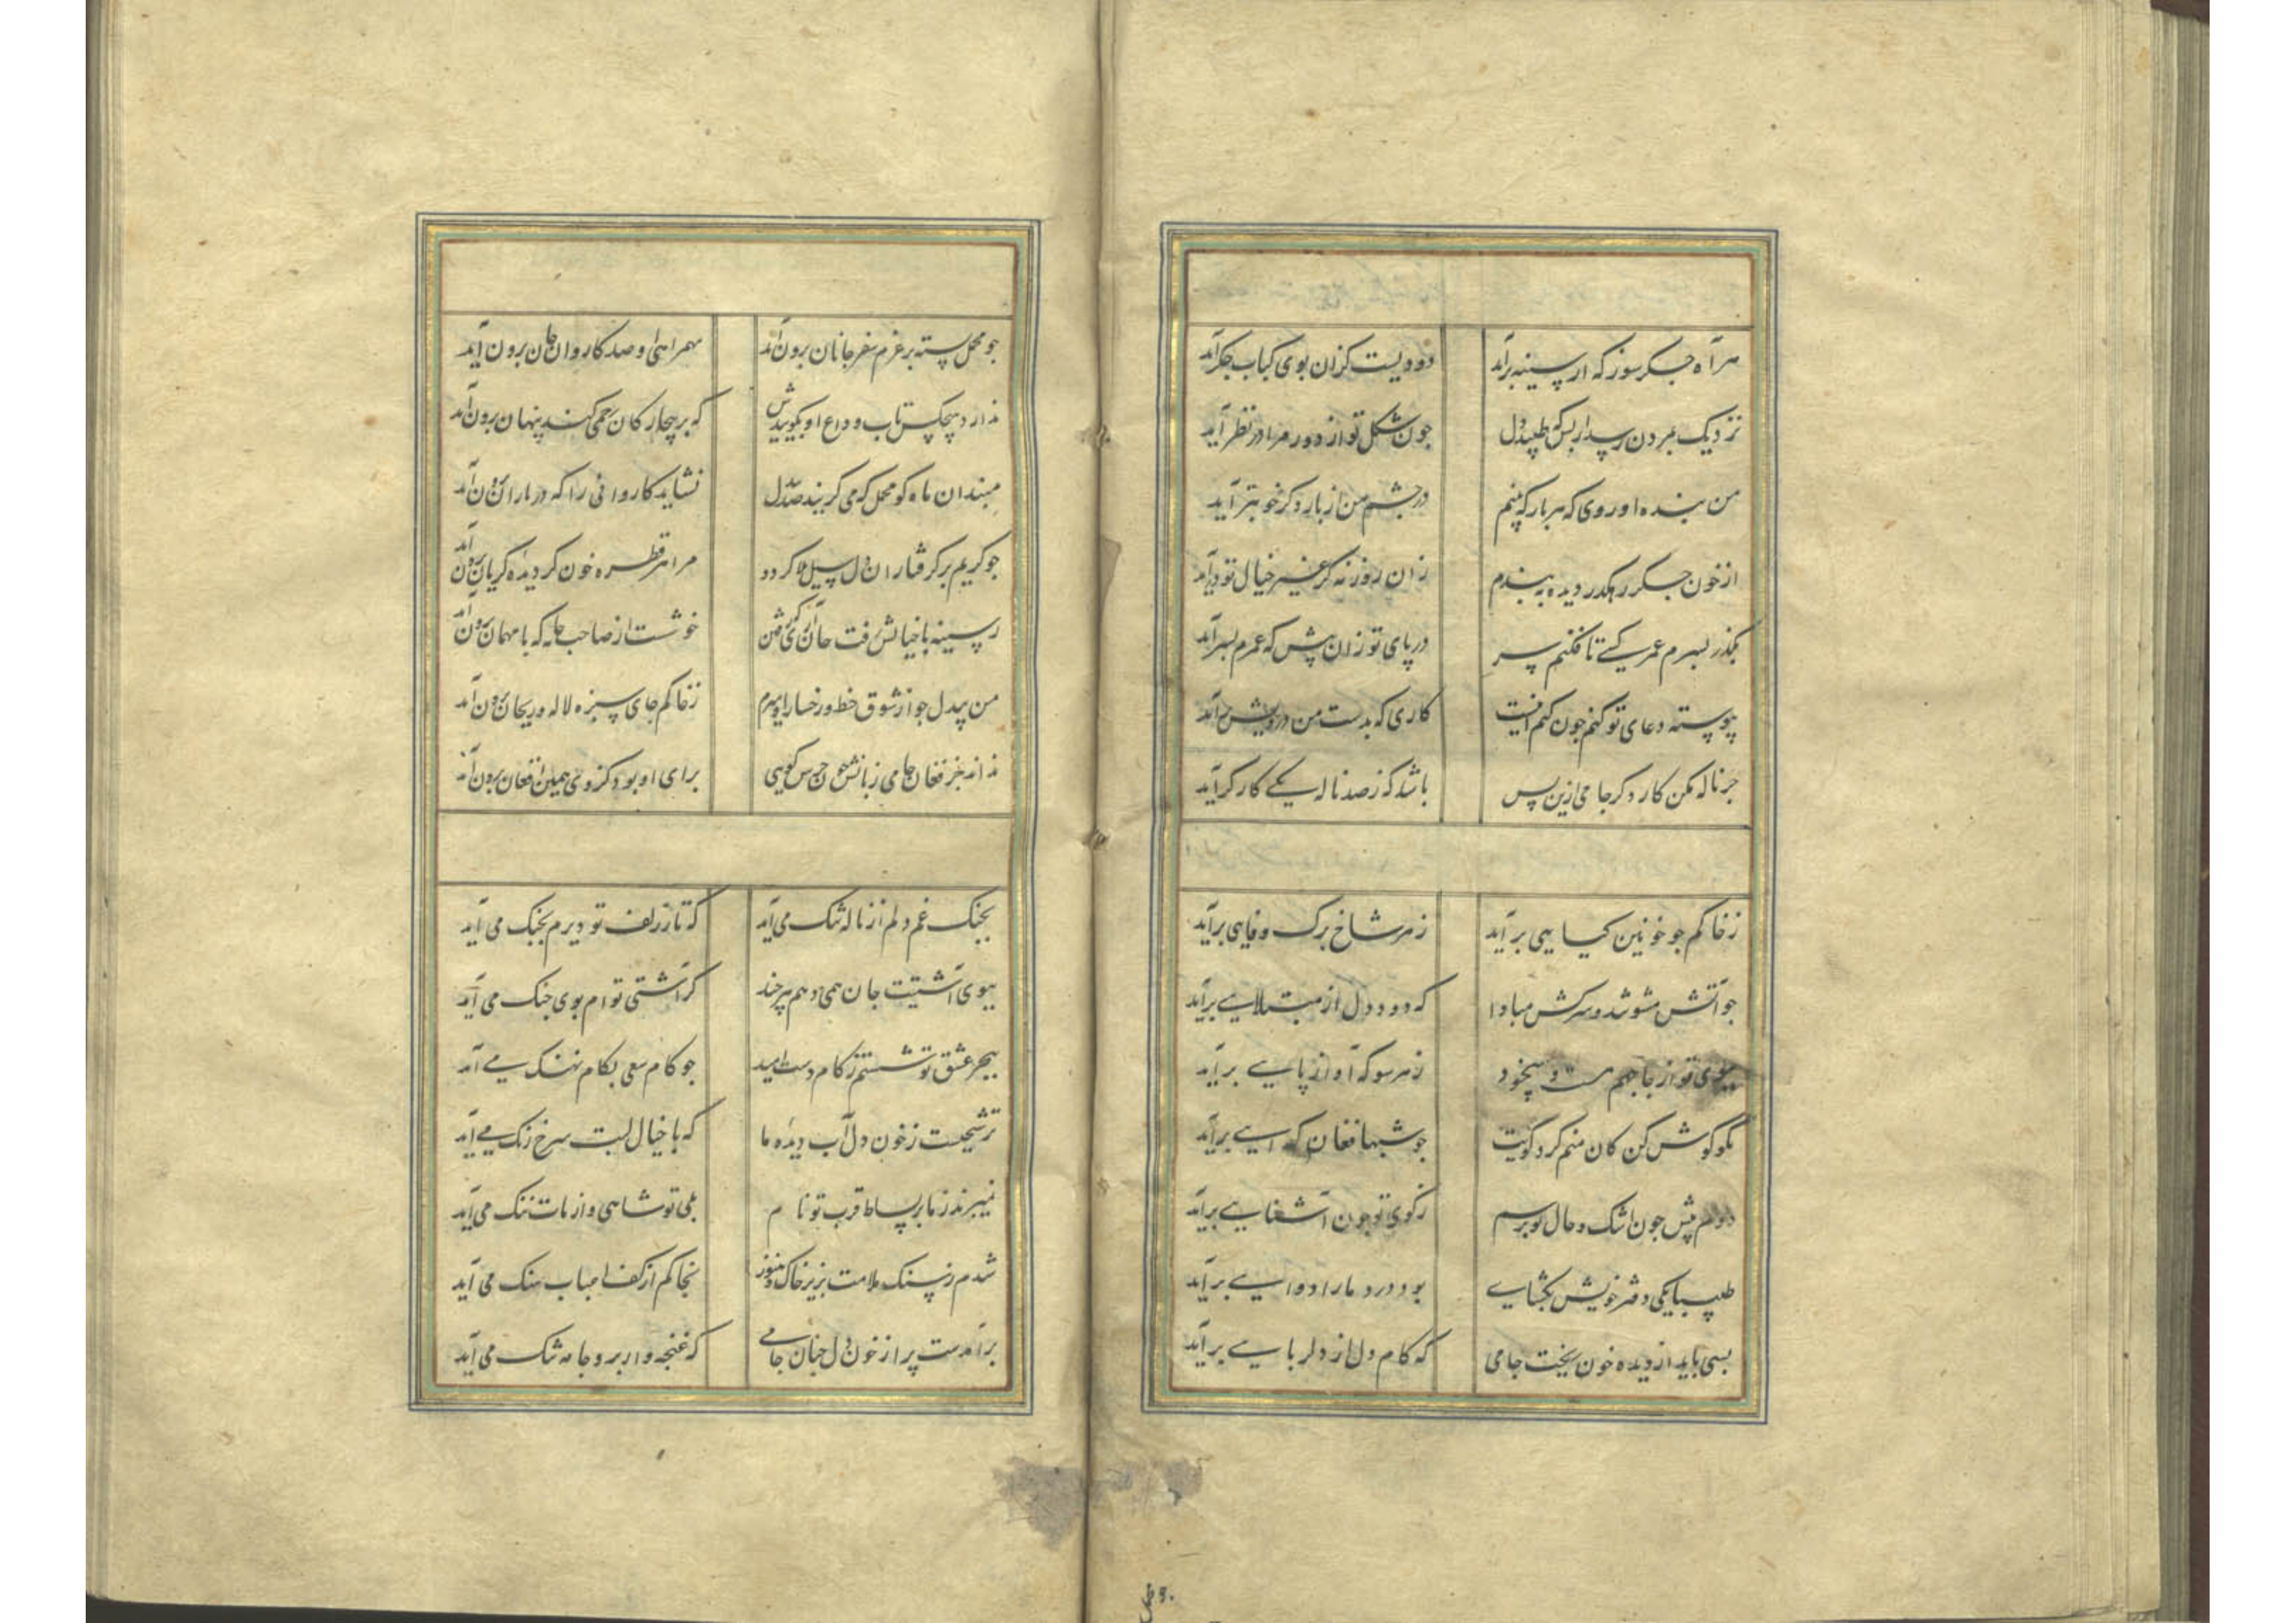 هر آه جگرسوز که از سینه برآید دودیست کزان بوی کباب جگر آید
نزدیک بمردن رسد از بس که طپد دل چون شکل تو از دور مرا در نظر آید
من بنده او روی که هر بار که بینم در چشم من از بار دگر خوبتر آید
از خون جگر رهگذر دیده ببندم زان روزنه گر غیر خیال تو درآید
بگذر بسرم عمر کسی تا فکنم سر در پای تو زان پیش که عمرم بسر آید
پیوسته دعای تو کنم چون کنم اینست کاری که بدست من درویش برآید
جز ناله مکن کار دگر جامی ازین پس باشد که ز صد ناله یکی کارگر آید
ز خاکم چو خونین گیاهی برآید ز هر شاخ برگ وفایی برآید
چو آتش مشو تند و سرکش مبادا که دود دل از مبتلایی برآید
ببوی تو از جا جهم مست و بیخود ز هر سو که آواز پایی برآید
نکو گوش کن کان منم گرد کویت چو شبها فغان گدایی برآید
دوم پیش چون اشک و حال تو پرسم ز کوی تو چون آشنایی برآید
طبیبا یکی دفتر خویش بگشای بود درد ما را دوایی برآید
بسی باید از دیده خون ریخت جامی که کام دل از دلربایی برآید
چو محمل بسته بر عزم سفر جانان برون آید بهمراهی او صد کاروان جان برون آید
ندارد هیچکس تاب وداع او بگوییدش که بر بیچارگان رحمی کند پنهان برون آید
مبند آن ماه گو محمل که می‌گریند صد بیدل نشاید کاروانی را که در باران برون آید
چو گریم بر گرفتاران دل سیل بلا گردد مرا هر قطره خون کز دیده گریان برون آید
ز سینه با خیالش رفت جان آری خوشست از صاحب خانه که با مهمان برون آید
من بیدل چو از شوق خط و رخسار او میرم ز خاکم جای سبزه لاله و ریحان برون آید
نداند جز فغان جامی زبانش چون جرس گویی برای او بود کز وی همین افغان برون آید
بچنگ غم دلم از ناله تنگ می‌آید که تار زلف تو دیرم بچنگ می‌آید
ببوی آشتیت جان همی‌دهم هرچند کز آشتی توام بوی جنگ می‌آید
ببحر عشق تو شستم ز کام دست امید چو کام سعی بکام نهنگ می‌آید
ترشحیست ز خون دل آب دیده ما که با خیال لبت سرخ رنگ می‌آید
نمیبرند ز ما بر بساط قرب تو نام بلی تو شاهی و از مات ننگ می‌آید
شدم ز سنگ ملامت بزیر خاک و هنوز بخاکم از کف احباب سنگ می‌آید
برآمدست پر از خون دل چنان جامی که غنچه‌وار برو جامه تنگ می‌آید